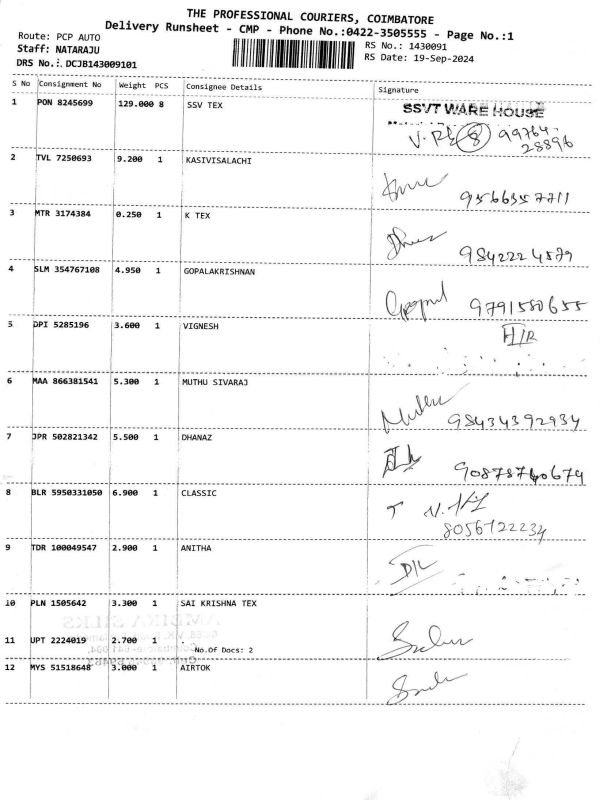 THE PROFESSIONAL COURIERS, COIMBATORE
Delivery Runsheet - CMP - Phone No.:0422-3505555 - Page No.:1
Route: PCP AUTO
Staff: NATARAJU
DRS No.: DCJB143009101
RS No.: 1430091
RS Date: 19-Sep-2024
S No Consignment No Weight PCS Consignee Details Signature
1 PON 8245699 129.000 8 SSV TEX SSVT WARE HOUSE
8 99764
28896
2 TVL 7250693 9.200 1 KASIVISALACHI
9566357711
3 MTR 3174384 0.250 1 K TEX
9842224579
4 SLM 354767108 4.950 1 GOPALAKRISHNAN
Gopal 9791580655
5 DPI 5285196 3.600 1 VIGNESH H/R
6 MAA 866381541 5.300 1 MUTHU SIVARAJ
98434392934
7 JPR 502821342 5.500 1 DHANAZ
90878740674
8 BLR 5950331050 6.900 1 CLASSIC
8056722234
9 TDR 100049547 2.900 1 ANITHA D/L
10 PLN 1505642 3.300 1 SAI KRISHNA TEX
AMBIKA SILKS
11 UPT 2224019 2.700 1 .
No.Of Docs: 2
12 MYS 51518648 3.000 1 AIRTOK